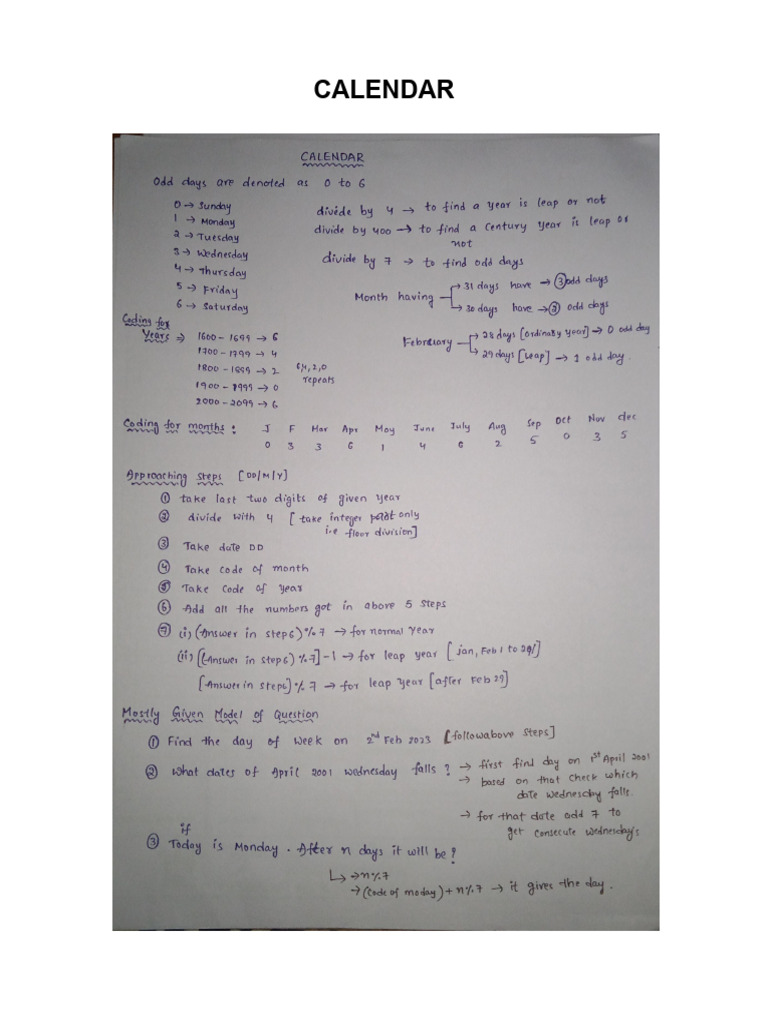 CALENDAR
CALENDAR
Odd days are denoted as 0 to 6
0 → Sunday
1 → Monday
2 → Tuesday
3 → Wednesday
4 → Thursday
5 → Friday
6 → Saturday
divide by 4 → to find a year is leap or not
divide by 400 → to find a century year is leap or
not
divide by 7 → to find odd days
Month having
31 days have → 3 odd days
30 days have → 2 odd days
February
28 days [ordinary year] → 0 odd day
29 days [Leap] → 1 odd day.
Coding for
Years ⇒
1600 - 1699 → 6
1700 - 1799 → 4
1800 - 1899 → 2
1900 - 1999 → 0
2000 - 2099 → 6
6,4,2,0
repeats
Coding for months : J F Mar Apr May June July Aug Sep Oct Nov dec
0 3 3 6 1 4 6 2 5 0 3 5
Approaching steps [DD/M/Y]
① take last two digits of given year
② divide with 4 [take integer part only
i.e floor division]
③ Take date DD
④ Take code of month
⑤ Take Code of year
⑥ Add all the numbers got in above 5 steps
⑦ (i) (Answer in step6) % 7 → for normal year
(ii) [(Answer in step6) % 7] - 1 → for leap year [jan, Feb 1 to 29]
[Answer in step6] % 7 → for leap year [after Feb 29]
Mostly Given Model of Question
① Find the day of week on 2nd Feb 2023 [follow above steps]
② What dates of April 2001 wednesday falls ?
→ first find day on 1st April 2001
→ based on that check which
date wednesday falls.
→ for that date add 7 to
get consecute wednesday's
if
③ Today is Monday. After n days it will be ?
↳ → n%7
→ (code of moday) + n%7 → it gives the day.